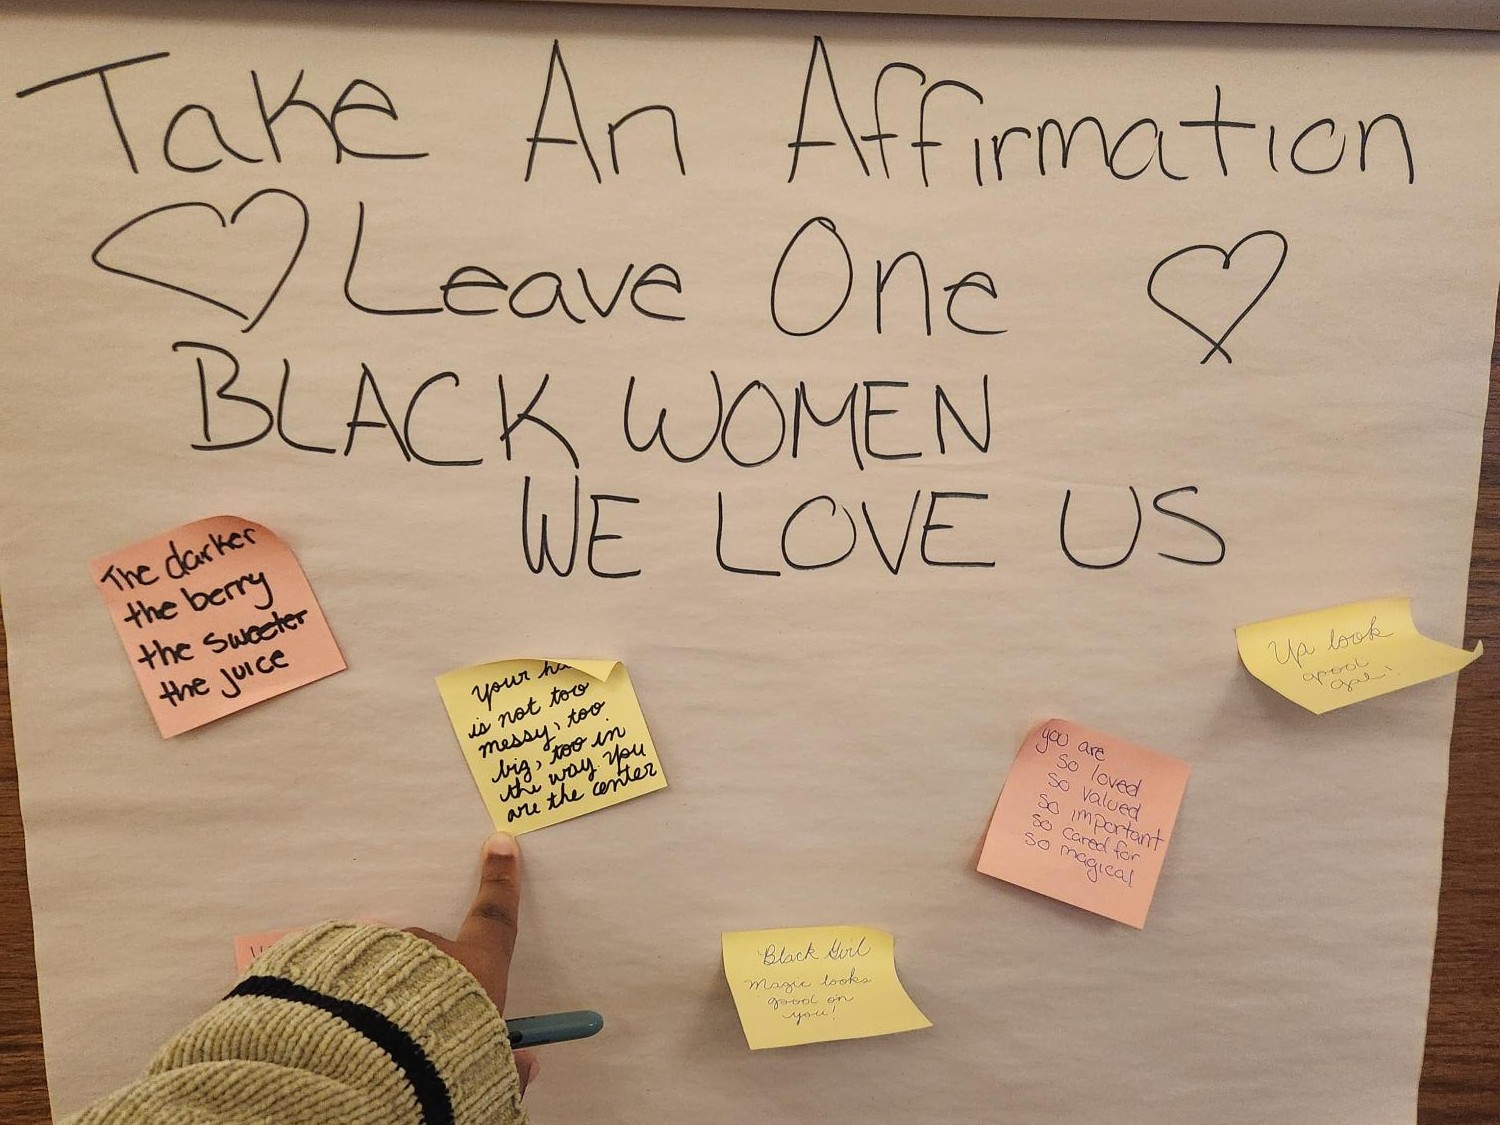 Take An Affirmation
Leave One
BLACK WOMEN
WE LOVE US
The darker
the berry
the sweeter
the juice
Your
is not too
messy, too
big, too in
the way. You
are the center
Ya look
good
gal!
you are
so loved
so valued
so important
so cared for
so magical
Black Girl
Magic looks
good on
you!